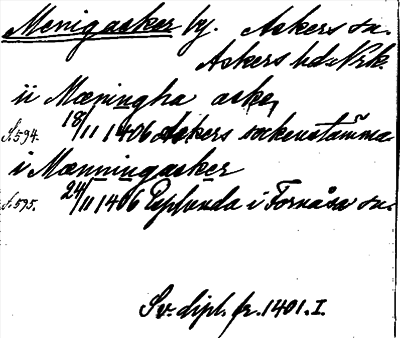 Menigasker by. Askers sn.
Askers hd. Nrk.
ij Mæningha asker
S. 594. 18/11 1406 Askers sockenstämma
i Mænningasker
S. 595. 24/11 1406 Esplunda i Fornåsa sn.
Sv. dipl. fr. 1401. I.